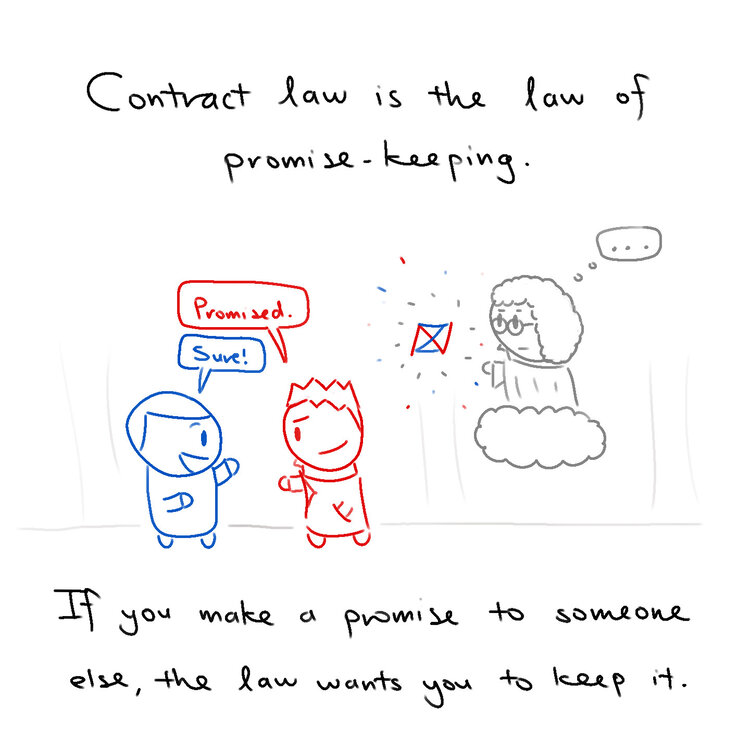 Contract law is the law of
promise-keeping.
...
Promised.
Sure!
If you make a promise to someone
else, the law wants you to keep it.